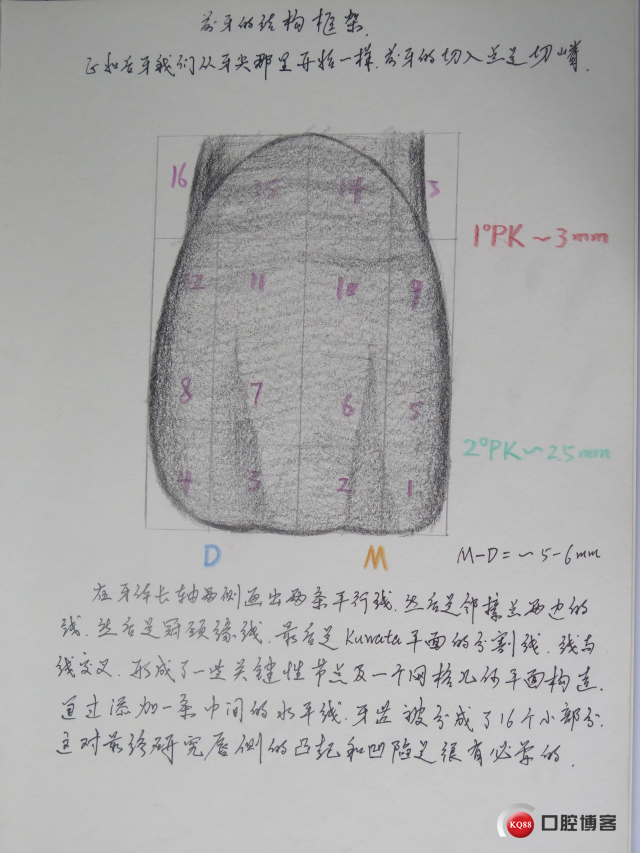 前牙的结构框架.
正如后牙我们从牙尖那里开始一样.前牙的切入点是切嵴.
16 15 14 3
1°PK ~ 3mm
12 11 10 9
8 7 6 5
2°PK ~ 25mm
4 3 2 1
D M
M-D = ~5-6mm
在牙体长轴两侧画出两条平行线.然后是邻接点两边的
线.然后是冠颈缘线.最后是Kuwata平面的分割线.线与
线交叉.形成了一些关键性节点及一个网格几何平面构造.
通过添加一条中间的水平线.牙齿被分成了16个小部分.
这对最终研究唇侧的凸起和凹陷是很有必要的.
KQ88 口腔博客